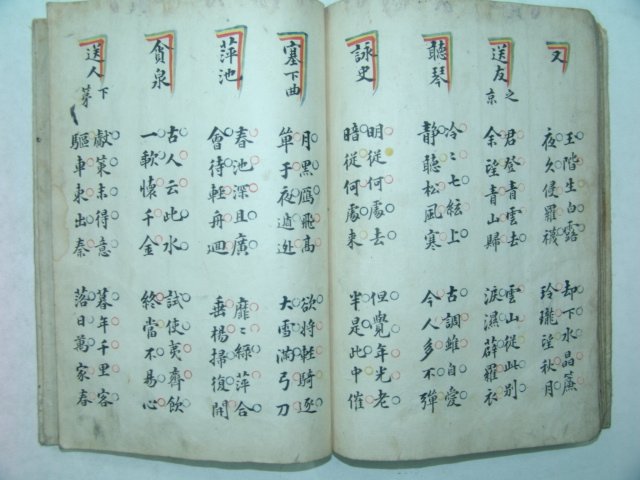 又
玉階生白露
夜久侵羅襪
却下水晶簾
玲瓏望秋月
送友之京
君登青雲去
余望青山歸
雲山從此別
淚濕薜羅衣
聽琴
泠〻七絃上
静聽松風寒
古調雖自愛
今人多不彈
詠史
明從何處去
暗從何處來
但覺年光老
半是此中催
塞下曲
月黑鴈飛高
單于夜遁迯
欲將輕騎逐
大雪滿弓刀
萍池
春池深且廣
會待輕舟廻
靡〻綠萍合
垂楊掃復開
貪泉
古人云此水
一歃懷千金
試使夷齊飲
終當不易心
送人下苐
獻策未得意
驅車東出秦
暮年千里客
落日萬家春